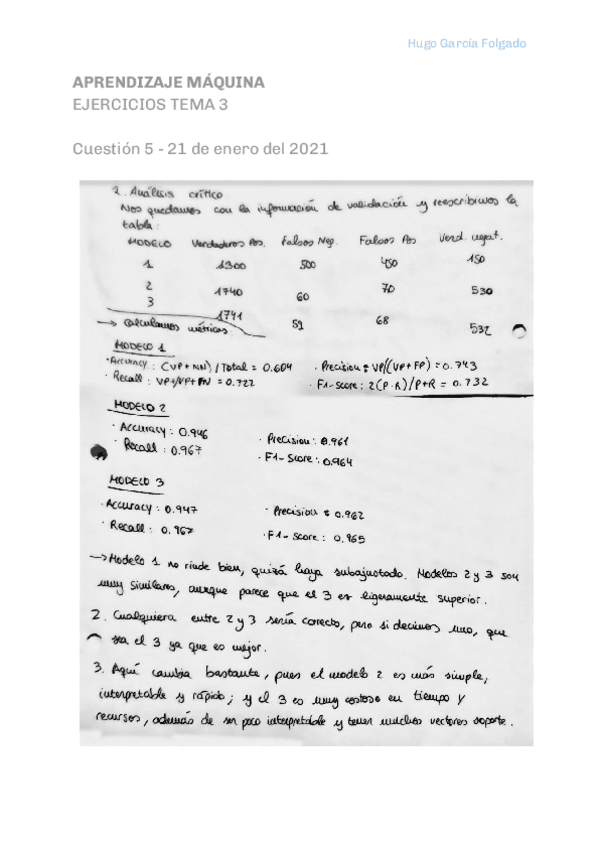 Hugo García Folgado
APRENDIZAJE MÁQUINA
EJERCICIOS TEMA 3
Cuestión 5 - 21 de enero del 2021
2. Análisis crítico
Nos quedamos con la información de validación y reescribimos la
tabla:
MODELO Verdaderos Pos. Falsos Neg. Falsos Pos Verd. negat.
1 1300 500 450 150
2 1740 60 70 530
3 1741 59 68 532
→ Calculamos métricas
MODELO 1
· Accuracy: (VP+NN)/Total = 0.604 · Precision = VP/(VP+FP) = 0.743
· Recall: VP/VP+FN = 0.722 · F1-score: 2(P·R)/P+R = 0.732
MODELO 2
· Accuracy: 0.946 · Precision: 0.961
· Recall: 0.967 · F1-Score: 0.964
MODELO 3
· Accuracy: 0.947 · Precision = 0.962
· Recall: 0.967 · F1-score: 0.965
→ Modelo 1 no rinde bien, quizá haya subajustado. Modelos 2 y 3 son
muy similares, aunque parece que el 3 es ligeramente superior.
2. Cualquiera entre 2 y 3 sería correcto, pero si decimos uno, que
sea el 3 ya que es mejor.
3. Aquí cambia bastante, pues el modelo 2 es más simple,
interpretable y rápido; y el 3 es muy costoso en tiempo y
recursos, además de ser poco interpretable y tener muchos vectores soporte.